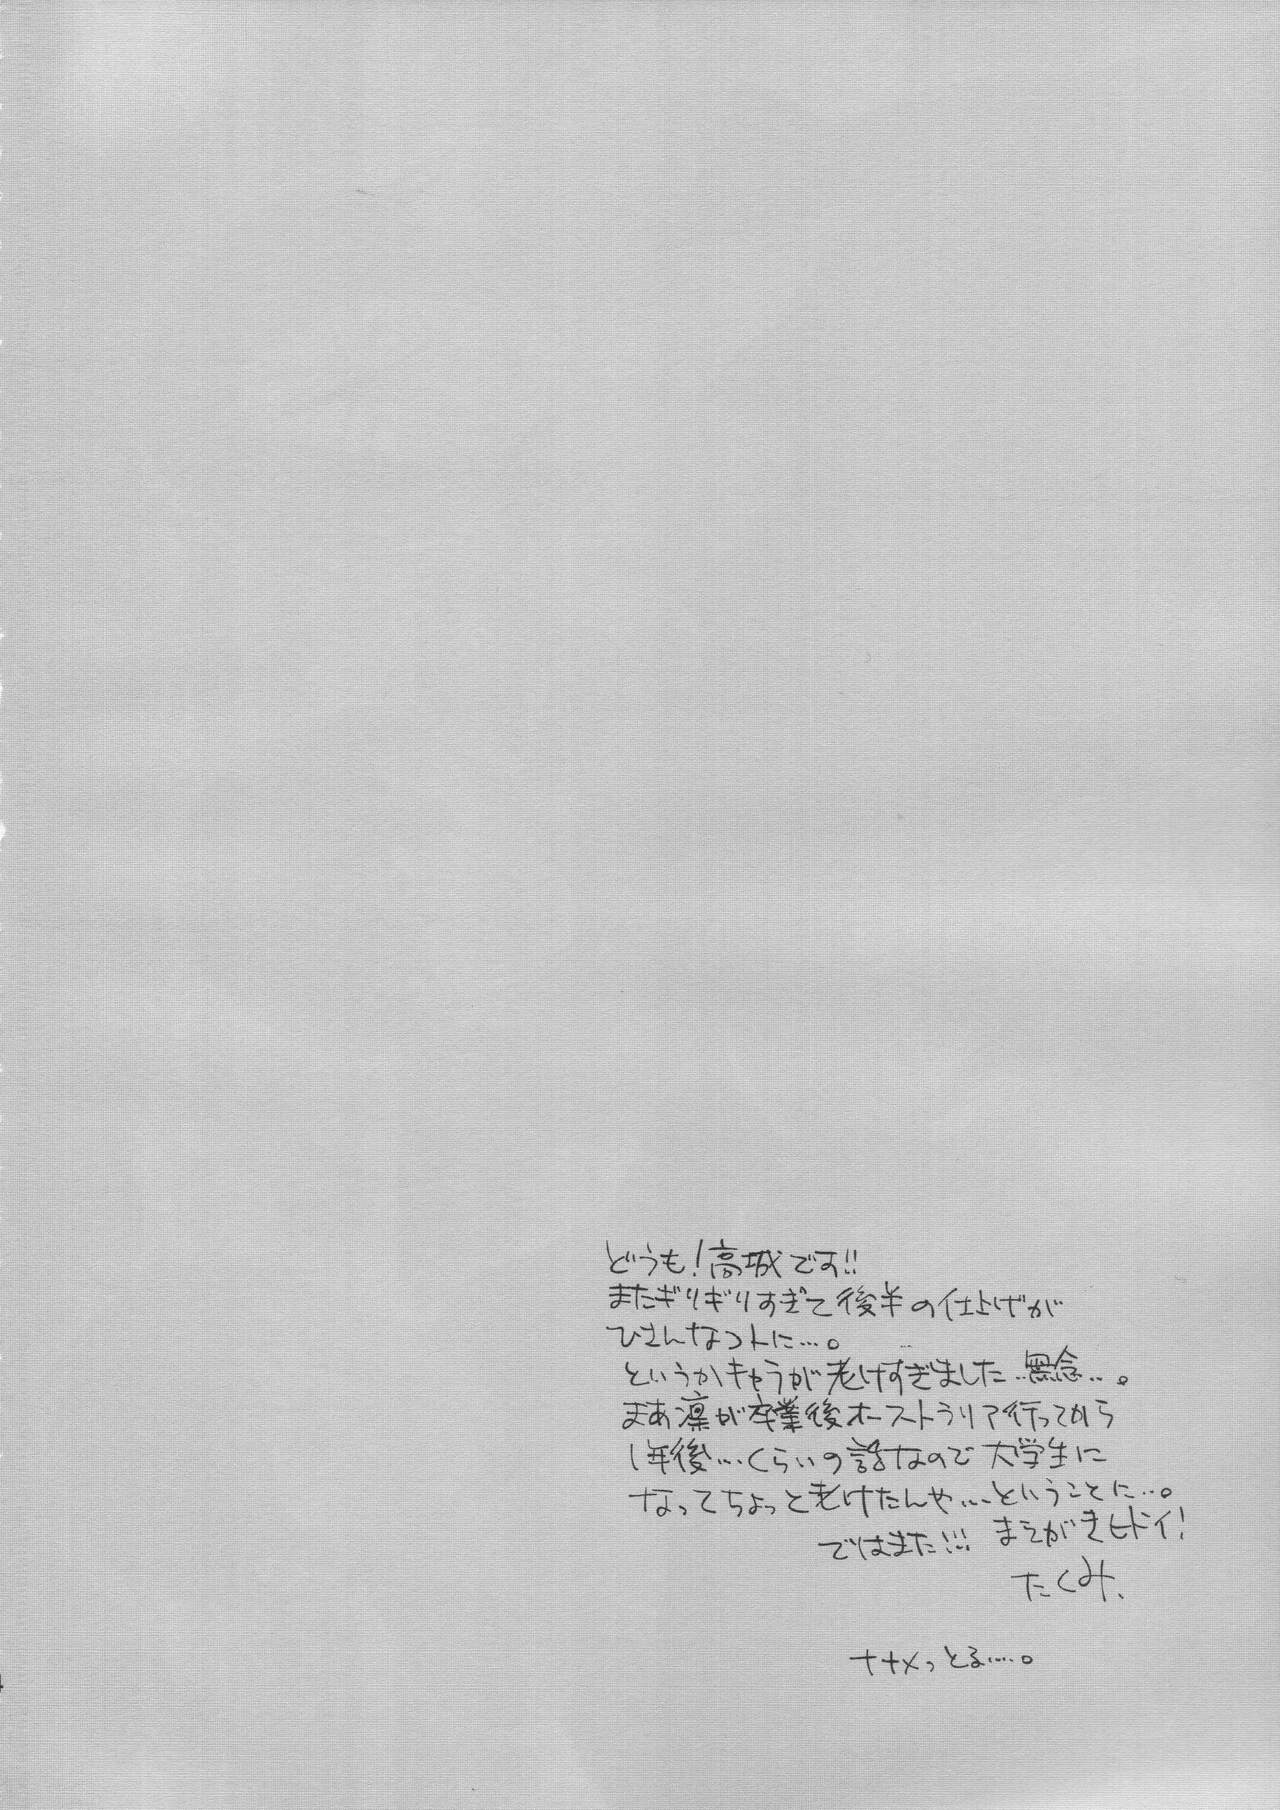 どうも!高城です!!
またギリギリすぎて後半の仕上げが
ひさんなコトに…。
というかキャラが老けすぎました…無念…。
まあ凛が卒業後オーストラリア行ってから
1年後…くらいの話なので大学生に
なってちょっと老けたんや…ということに…。
ではまた!!! まえがきヒドイ!
たくみ、
ナナメっとる…。